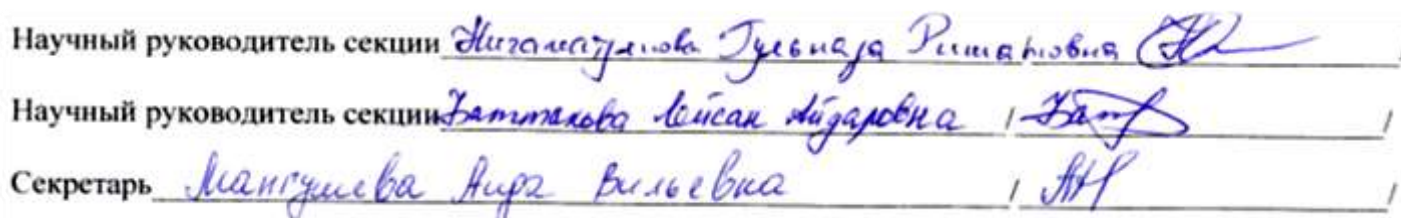 Научный руководитель секции Нигаматзянова Гульназа Ришатовна /
Научный руководитель секции Баттакова Лейсан Айдаровна / Бат /
Секретарь Мангушева Аида Вильевна / АМ /